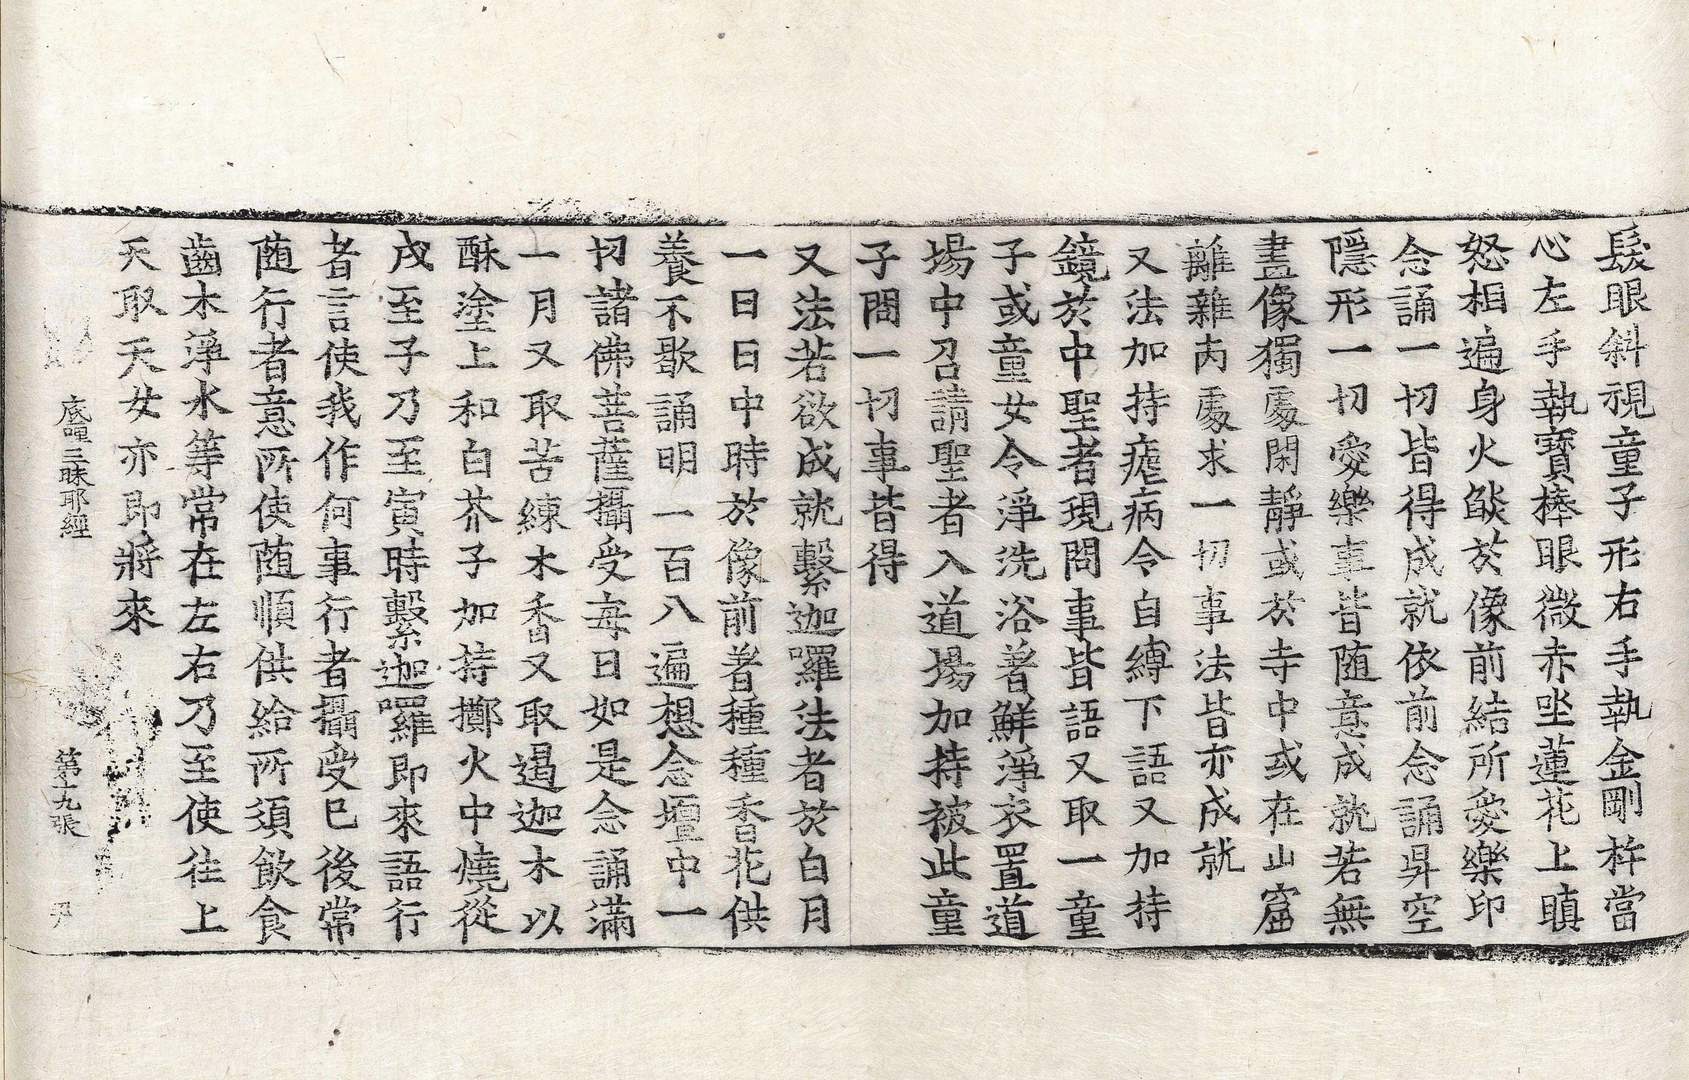 髮眼斜視童子形右手執金剛杵當
心左手執寶棒眼微赤坐蓮花上瞋
怒相遍身火燄於像前結所愛樂印
念誦一切皆得成就依前念誦昇空
隱形一切愛樂事皆随意成就若無
畫像獨處閑靜或於寺中或在山窟
離雜丙處求一切事法皆亦成就
又法加持瘧病令自縛下語又加持
鏡於中聖者現問事皆語又取一童
子或童女令淨洗浴著鮮淨衣置道
場中召請聖者入道場加持被此童
子問一切事皆得
又法若欲成就繫迦囉法者於白月
一日日中時於像前著種種香花供
養不歇誦明一百八遍想念壇中一
切諸佛菩薩攝受每日如是念誦滿
一月又取苦練木香又取遏迦木以
酥塗上和白芥子加持擲火中燒從
戌至子乃至寅時繫迦囉即來語行
者言使我作何事行者攝受已後常
随行者意所使随順供給所須飲食
齒木淨水等常在左右乃至使往上
天取天女亦即將來
底哩三昧耶經 第十九張 尹